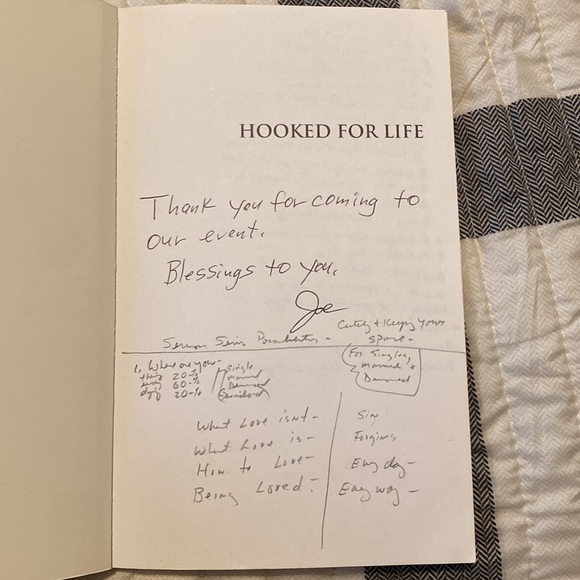 HOOKED FOR LIFE
Thank you for coming to
our event.
Blessings to you,
Joe
Sermon Series Possibilities -
Catch & Keeping Your
Spouse -
For Singles,
Married &
Divorced
1. Where are you -
20-%
60-%
20-%
Single
Married
Divorced
What Love isn't -
What Love is -
How to Love -
Being Loved -
Sin
Forgives
Every day -
Every way -